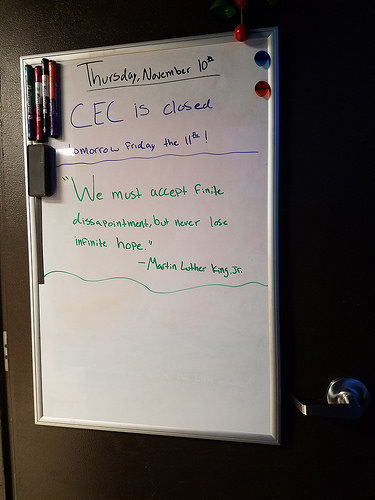 Thursday, November 10th
CEC is closed
tomorrow Friday the 11th!
"We must accept finite
dissapointment, but never lose
infinite hope."
- Martin Luther King, Jr.